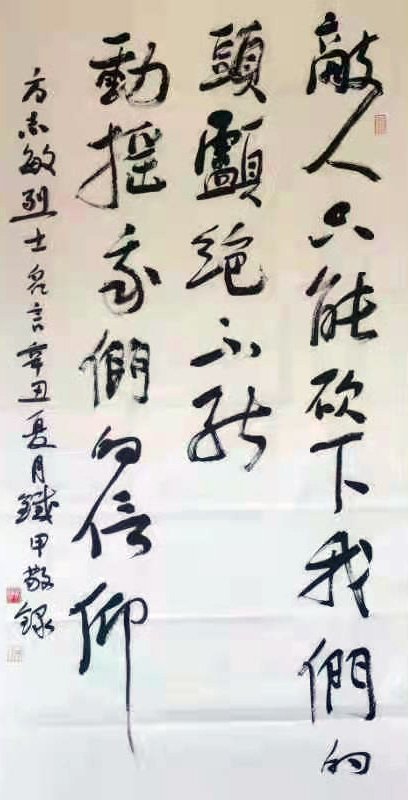 敵人只能砍下我們的
頭顱絕不能
動搖我們的信仰
方志敏烈士名言辛丑夏月鐵甲敬錄